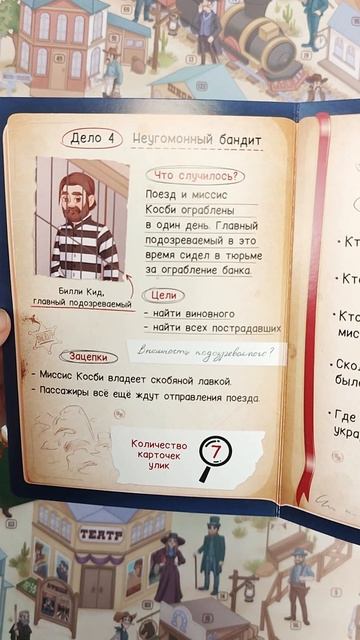 Дело 4 Неугомонный бандит
Что случилось?
Поезд и миссис
Косби ограблены
в один день. Главный
подозреваемый в это
время сидел в тюрьме
за ограбление банка.
Билли Кид,
главный подозреваемый
Цели
- найти виновного
- найти всех пострадавших
Внешность подозреваемого?
Зацепки
- Миссис Косби владеет скобяной лавкой.
- Пассажиры всё ещё ждут отправления поезда.
Количество
карточек
улик
7
ТЕАТР